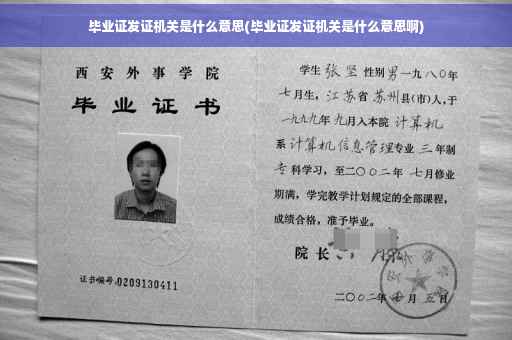 毕业证发证机关是什么意思(毕业证发证机关是什么意思啊)
西安外事学院
毕业证书
证书编号:0209130411
学生 张坚 性别 男 一九八〇年
七月生,江苏省 苏州县(市)人,于
一九九九年 九月入本院 计算机
系 计算机信息管理专业 三 年制
专科学习,至二〇〇二年 七月修业
期满,学完教学计划规定的全部课程,
成绩合格,准予毕业。
院长
二〇〇二年 月 五日